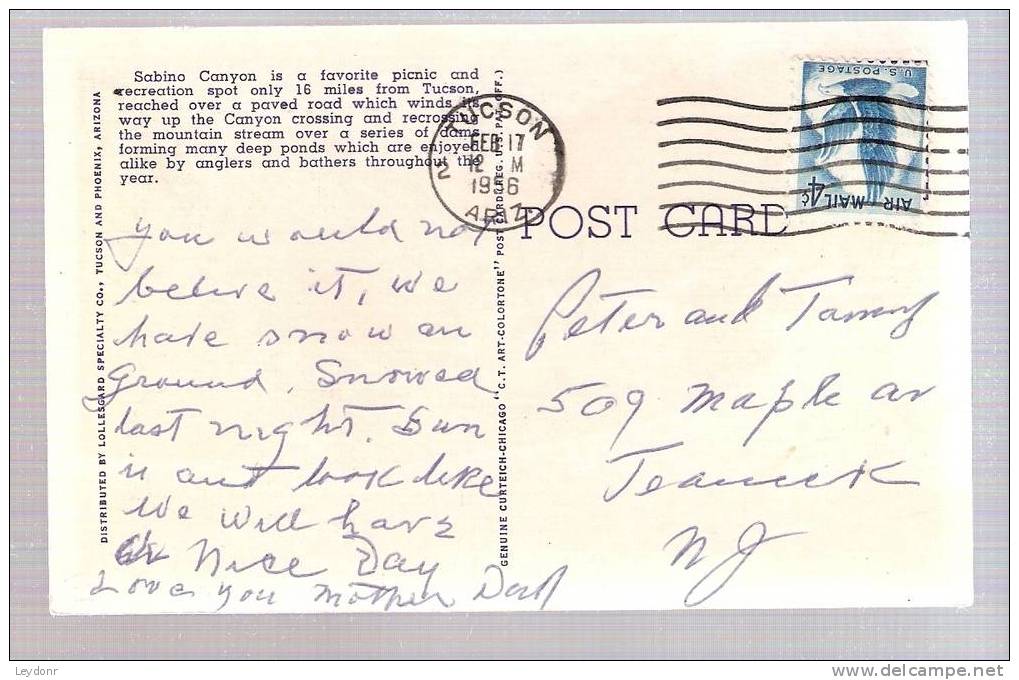 Sabino Canyon is a favorite picnic and
recreation spot only 16 miles from Tucson,
reached over a paved road which winds its
way up the Canyon crossing and recrossing
the mountain stream over a series of dams
forming many deep ponds which are enjoyed
alike by anglers and bathers throughout the
year.
you would not
belive it, we
have snow on
ground. Snowed
last night. Sun
is out look like
we will have
a Nice Day
Love you Mother Dad
DISTRIBUTED BY LOLLESGARD SPECIALTY CO., TUCSON AND PHOENIX, ARIZONA
GENUINE CURTEICH-CHICAGO "C.T. ART-COLORTONE" POST CARD (REG. U.S. PAT. OFF.)
TUCSON
2
FEB 17
12 M
1966
ARIZ.
POST CARD
U.S. POSTAGE
AIR MAIL 4¢
Peter and Tammy
509 Maple av
Teaneck
NJ
Leydonr
www.delcampe.net